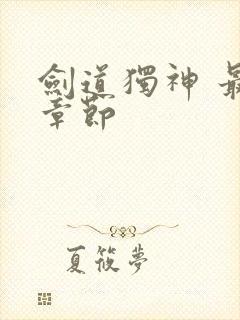 劍道獨神 最
章節
夏筱夢